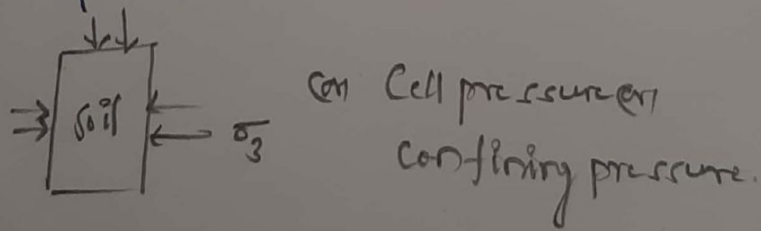 soil
σ3 (or) Cell pressure (or)
confining pressure.